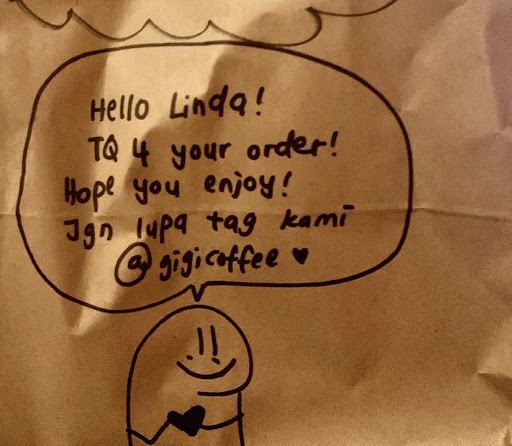 Hello Linda!
TQ 4 your order!
Hope you enjoy!
Jgn lupa tag kami
@gigicoffee ♥